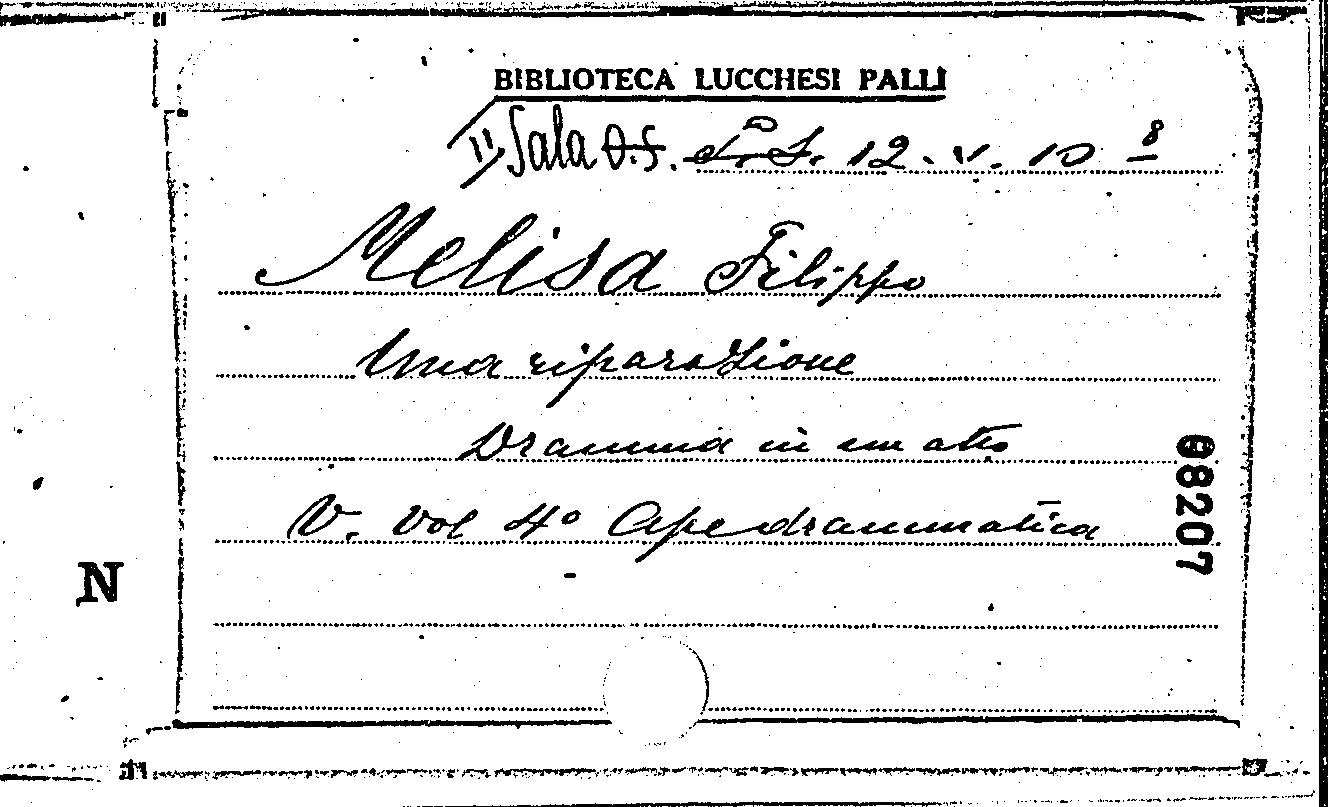 BIBLIOTECA LUCCHESI PALLI
II Sala 12. V. 10 8
Melisa Filippo
Una riparazione
Dramma in un atto
V. Vol 4° Ape drammatica
08207
N